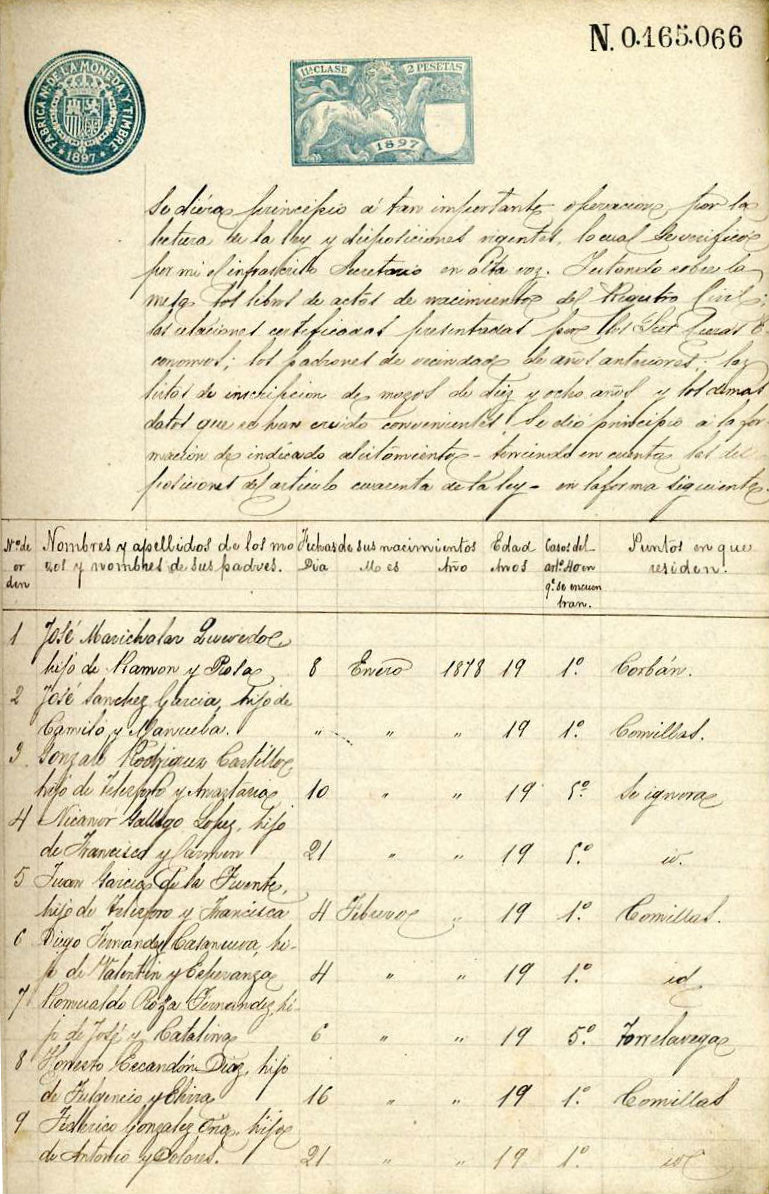 N. 0.165.066
FABRICA Nal DE LA MONEDA Y TIMBRE
* 1897 *
11ª CLASE 2 PESETAS
1897
se diera principio á tan importante operacion, por la
lectura de la ley y disposiciones vigentes, lo cual se verificó
por mi el infrascrito Secretario en alta voz. Estando sobre la
mesa los libros de actos de nacimiento del Registro Civil;
las relaciones certificadas presentadas por los Sres Curas E-
conomos; los padrones de vecindad de años anteriores; las
listas de inscripcion de mozos de diez y ocho años y los demas
datos que se han creido convenientes, se dió principio a la for-
macion de indicado alistamiento - teniendo en cuenta las dis-
posiciones del articulo cuarenta de la ley - en la forma siguiente.
Nº de orden
Nombres y apellidos de los mozos y nombres de sus padres.
Fechas de sus nacimientos
Dia Mes Año
Edad Años
Casos del artº 40 en qe se encuentran.
Puntos en que residen.
1 José Marichalar Quevedo
hijo de Ramon y Rosa 8 Enero 1878 19 1.º Corbán.
2 José Sanchez Garcia, hijo de
Camilo y Manuela. " " " 19 1.º Comillas.
3 Gonzalo Rodriguez Castillo
hijo de Telesforo y Anastasia 10 " " 19 5.º Se ignora
4 Nicanor Gallego Lopez, hijo
de Francisco y Carmen 21 " " 19 5.º id.
5 Juan Garcia de la Fuente,
hijo de Telesforo y Francisca 4 Febrero " 19 1.º Comillas.
6 Diego Fernandez Casanueva, hi-
jo de Valentin y Esperanza 4 " " 19 1.º id
7 Romualdo Roza Fernandez, hi-
jo de José y Catalina 6 " " 19 5.º Torrelavega
8 Díaz, hijo
de Fulgencio y Elvira 16 " " 19 1.º Comillas
9 Federico Gonzalez hijo
de Antonio y Dolores. 21 " " 19 1.º id